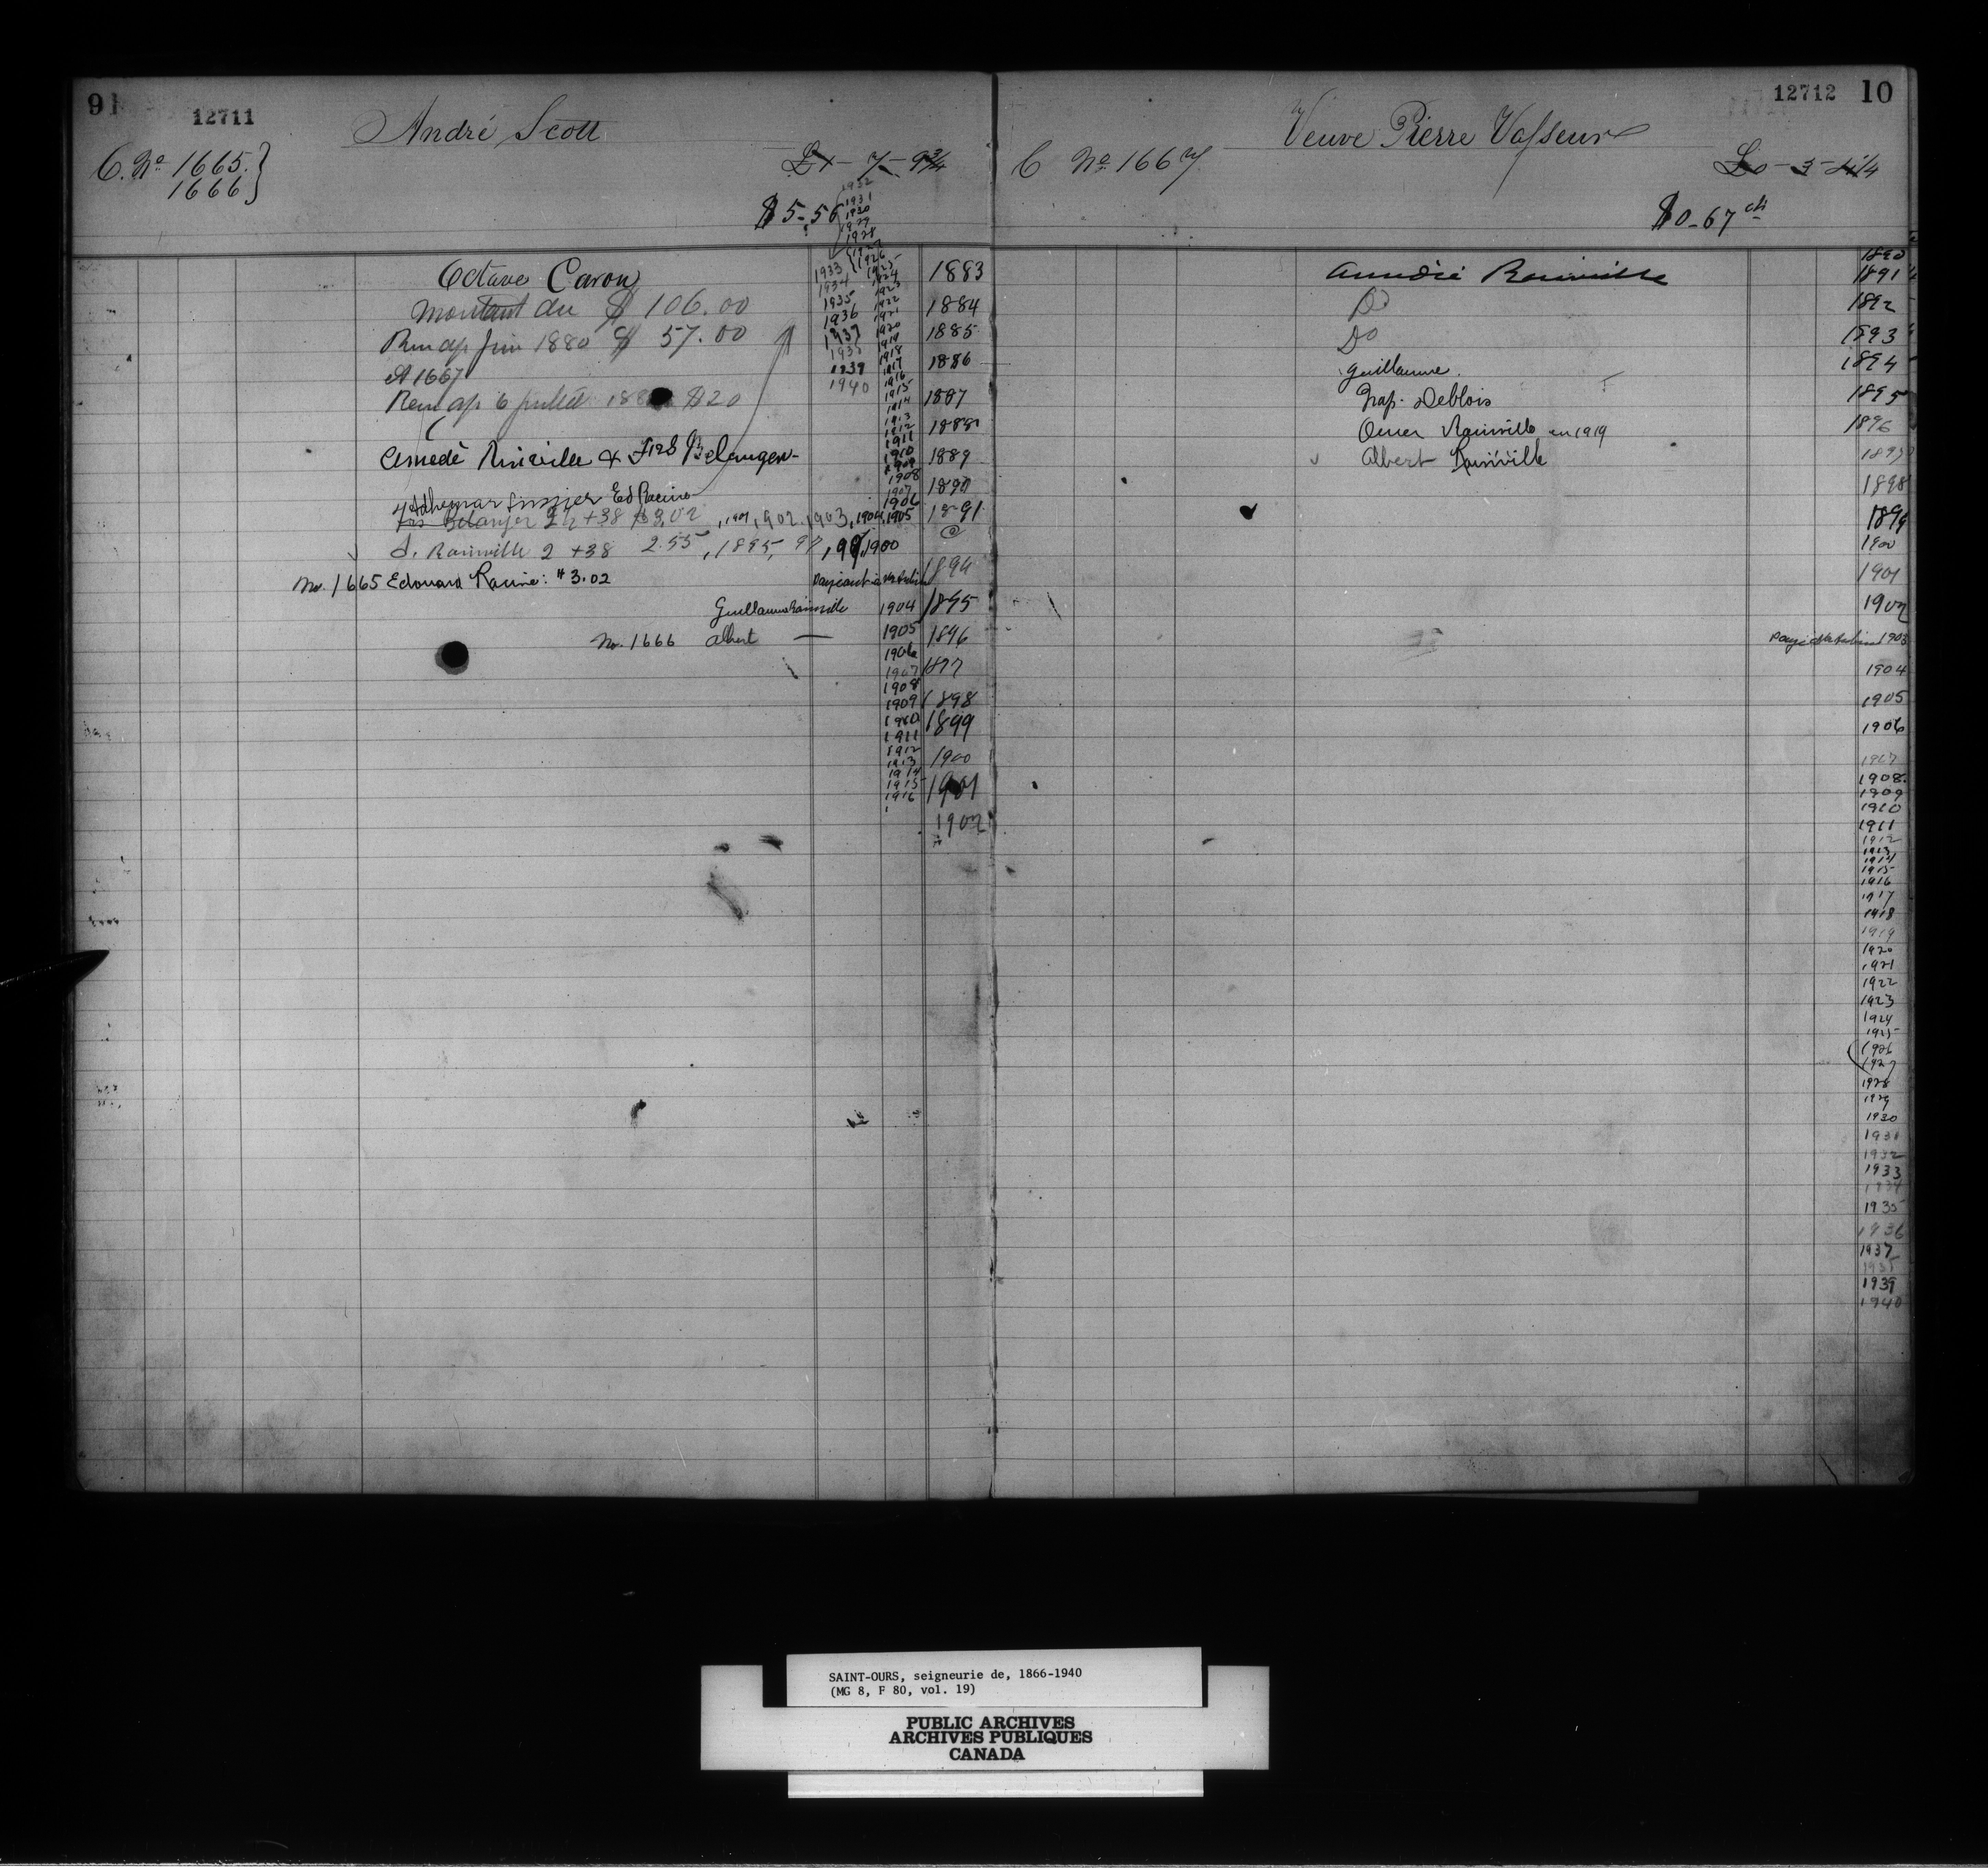 9
12711
André Scott
C. No 1665.
1666
$5-56
1932
1931
1930
1929
1928
1927
1926
1925
1924
1923
1922
1921
1920
1919
1918
1917
1916
1915
1914
1913
1912
1911
1910
1909
1908
1907
1906
1933
1934
1935
1936
1937
1938
1939
1940
Octave Caron 1883
Montant du $ 106.00 1884
juin 1880 $ 57.00 1885
et 1667 1886
6 juillet $20 1887
1888
Amedé Rainville & Frs Belanger 1889
Adhemar Ed Racine 1890
Frs Belanger 2 +38 $3,02, 1901, 1902, 1903, 1904, 1905 1891
Rainville 2 +38 2.55, 1895, 97, 99, 1900
No. 1665 Edouard Racine: $3.02 1894
Guillaume Rainville 1904 1895
No. 1666 Albert — 1905 1896
1906
1907 1897
1908
1909 1898
1910 1899
1911
1912 1900
1913
1914
1915 1901
1916
1902
12712 10
Veuve Pierre Vasseur
C No 1667
$0-67 cts
1890
Amedée Rainville 1891
Do 1892
Do 1893
Guillaume. 1894
Nap. Deblois 1895
Omer Rainville en 1919 1896
Albert Rainville 1897
1898
1899
1900
1901
1902
1903
1904
1905
1906
1907
1908
1909
1910
1911
1912
1913
1914
1915
1916
1917
1918
1919
1920
1921
1922
1923
1924
1925
1926
1927
1928
1929
1930
1931
1932
1933
1934
1935
1936
1937
1938
1939
1940
SAINT-OURS, seigneurie de, 1866-1940
(MG 8, F 80, vol. 19)
PUBLIC ARCHIVES
ARCHIVES PUBLIQUES
CANADA